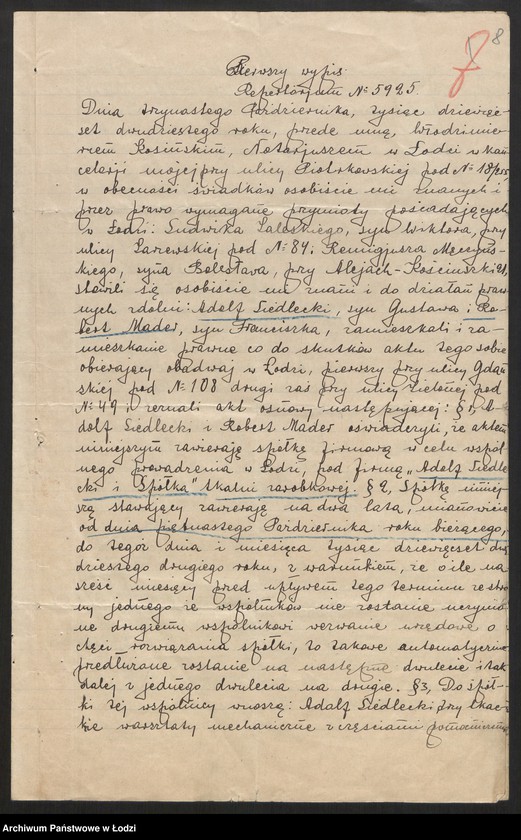 8
Pierwszy wypis.
Repertorjum № 5925.
Dnia trzynastego Października, tysiąc dziewięć-
set dwudziestego roku, przede mną, Włodzimie-
rzem Kosińskim, Notarjuszem w Łodzi w kan-
celarji mojej przy ulicy Piotrkowskiej pod № 18/255
w obecności świadków osobiście mi znanych i
przez prawo wymagane przymioty posiadających
w Łodzi: Ludwika Zaleskiego, syna Wiktora, przy
ulicy pod № 84 i Remigjusza
skiego, syna Bolesława, przy Alejach-Kościuszki 21,
stawili się osobiście mi znani i do działań praw
nych zdolni: Adolf Siedlecki, syn Gustawa i Ro-
bert Mader, syn Franciszka, zamieszkali i za-
mieszkanie prawne co do skutków aktu tego sobie
obierający obadwaj w Łodzi, pierwszy przy ulicy Gdań
skiej pod № 108 drugi zaś przy ulicy Zielonej pod
№ 49 i zeznali akt osnowy następującej: § 1, A-
dolf Siedlecki i Robert Mader oświadczyli, że aktem
niniejszym zawierają spółkę firmową w celu wspól-
nego prowadzenia w Łodzi, pod firmą „Adolf Siedle
cki i Spółka" tkalni zarobkowej. § 2, Spółkę niniej
szą stawający zawierają na dwa lata, mianowicie
od dnia piętnastego Października roku bieżącego,
do tegoż dnia i miesiąca tysiąc dziewięćset dwu
dziestego drugiego roku, z warunkiem, że o ile na
sześć miesięcy przed upływem tego terminu ze stro
ny jednego ze wspólników nie zostanie uczynio
ne drugiemu wspólnikowi wezwanie urzędowe o
chęci rozwiązania spółki, to takowe automatycznie
przedłużane zostanie na następne dwulecie i tak
dalej z jednego dwulecia na drugie. § 3, Do spół-
ki tej wspólnicy wnoszą: Adolf Siedlecki trzy tkac-
kie warsztaty mechaniczne z częściami
Archiwum Państwowe w Łodzi